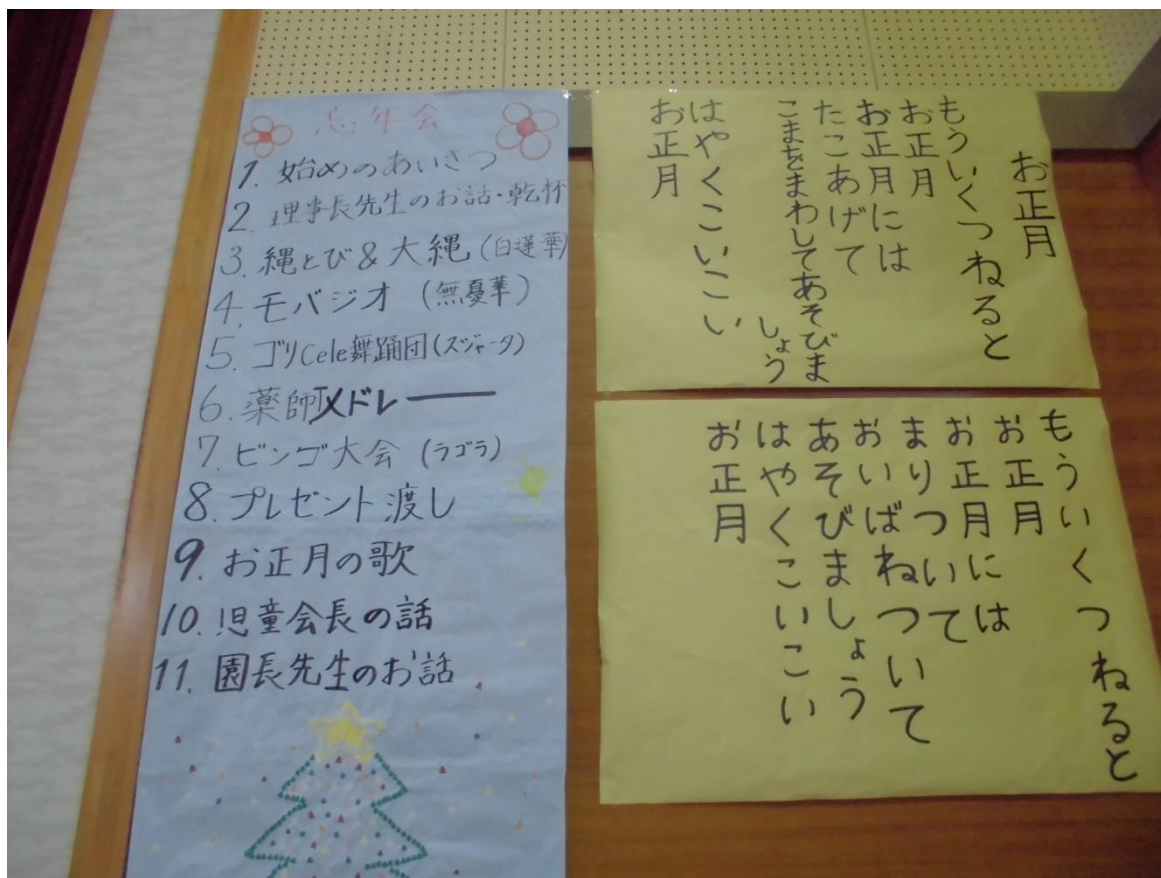 忘年会
1. 始めのあいさつ
2. 理事長先生のお話・乾杯
3. 縄とび&大縄(白蓮華)
4. モバジオ(無憂華)
5. ゴリCele舞踊団(スジャータ)
6. 薬師メドレー
7. ビンゴ大会(ラゴラ)
8. プレゼント渡し
9. お正月の歌
10. 児童会長の話
11. 園長先生のお話
お正月
もういくつねると
お正月
お正月には
たこあげて
こまをまわしてあそびま
しょう
はやくこいこい
お正月
もういくつねると
お正月
お正月には
まりついて
おいばねついて
あそびましょう
はやくこいこい
お正月